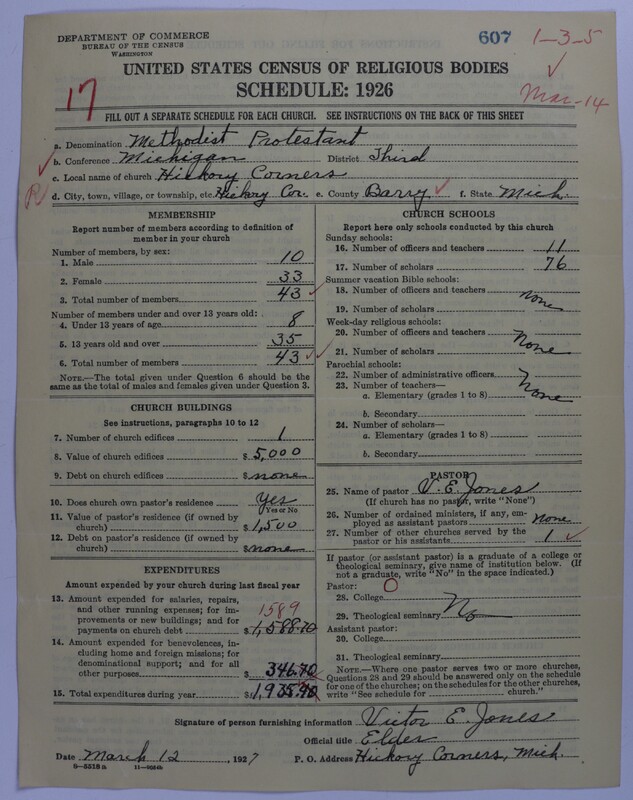 DEPARTMENT OF COMMERCE
BUREAU OF THE CENSUS
WASHINGTON
607
1-3-5
Mar-14
UNITED STATES CENSUS OF RELIGIOUS BODIES
SCHEDULE: 1926
17
FILL OUT A SEPARATE SCHEDULE FOR EACH CHURCH. SEE INSTRUCTIONS ON THE BACK OF THIS SHEET
a. Denomination Methodist Protestant
b. Conference Michigan District Third
c. Local name of church Hickory Corners
d. City, town, village, or township, etc. Hickory Cor. e. County Barry f. State Mich.
MEMBERSHIP
Report number of members according to definition of
member in your church
Number of members, by sex:
1. Male 10
2. Female 33
3. Total number of members 43
Number of members under and over 13 years old:
4. Under 13 years of age 8
5. 13 years old and over 35
6. Total number of members 43
NOTE.—The total given under Question 6 should be the
same as the total of males and females given under Question 3.
CHURCH BUILDINGS
See instructions, paragraphs 10 to 12
7. Number of church edifices 1
8. Value of church edifices $5,000
9. Debt on church edifices $none
10. Does church own pastor's residence Yes
Yes or No
11. Value of pastor's residence (if owned by
church) $1,500
12. Debt on pastor's residence (if owned by
church) $none
EXPENDITURES
Amount expended by your church during last fiscal year
13. Amount expended for salaries, repairs,
and other running expenses; for im-
provements or new buildings; and for
payments on church debt $1,588.70
1589
14. Amount expended for benevolences,
including home and foreign missions; for
denominational support; and for all
other purposes $346.70
15. Total expenditures during year $1,935.40
CHURCH SCHOOLS
Report here only schools conducted by this church
Sunday schools:
16. Number of officers and teachers 11
17. Number of scholars 76
Summer vacation Bible schools:
18. Number of officers and teachers none
19. Number of scholars
Week-day religious schools:
20. Number of officers and teachers None
21. Number of scholars
Parochial schools:
22. Number of administrative officers None
23. Number of teachers—
a. Elementary (grades 1 to 8)
b. Secondary
24. Number of scholars—
a. Elementary (grades 1 to 8)
b. Secondary
PASTOR
25. Name of pastor V. E. Jones
(If church has no pastor, write "None")
26. Number of ordained ministers, if any, em-
ployed as assistant pastors none
27. Number of other churches served by the
pastor or his assistants 1
If pastor (or assistant pastor) is a graduate of a college or
theological seminary, give name of institution below. (If
not a graduate, write "No" in the space indicated.)
Pastor: O
28. College No
29. Theological seminary
Assistant pastor:
30. College
31. Theological seminary
NOTE.—Where one pastor serves two or more churches,
Questions 28 and 29 should be answered only on the schedule
for one of the churches; on the schedules for the other churches,
write "See schedule for church."
Signature of person furnishing information Victor E. Jones
Official title Elder
Date March 12, 1927 P. O. Address Hickory Corners, Mich.